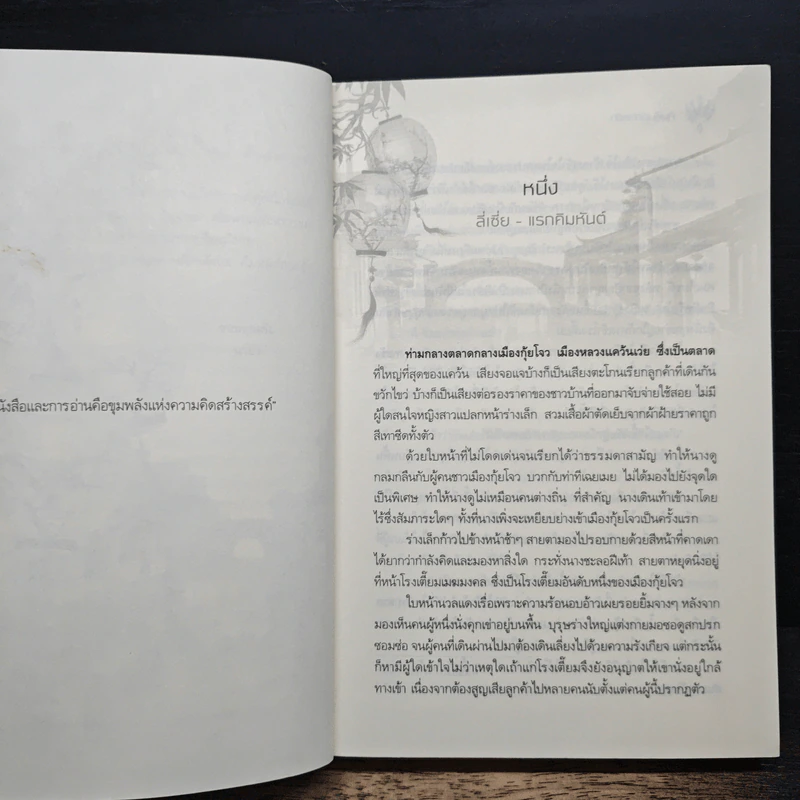 นังสือและการอ่านคือขุมพลังแห่งความคิดสร้างสรรค์"
หนึ่ง
ลี่เซี่ย - แรกคิมหันต์
ท่ามกลางตลาดกลางเมืองกุ้ยโจว เมืองหลวงแคว้นเว่ย ซึ่งเป็นตลาด
ที่ใหญ่ที่สุดของแคว้น เสียงจอแจบ้างก็เป็นเสียงตะโกนเรียกลูกค้าที่เดินกัน
ขวักไขว่ บ้างก็เป็นเสียงต่อรองราคาของชาวบ้านที่ออกมาจับจ่ายใช้สอย ไม่มี
ผู้ใดสนใจหญิงสาวแปลกหน้าร่างเล็ก สวมเสื้อผ้าตัดเย็บจากผ้าฝ้ายราคาถูก
สีเทาซีดทั้งตัว
ด้วยใบหน้าที่ไม่โดดเด่นจนเรียกได้ว่าธรรมดาสามัญ ทำให้นางดู
กลมกลืนกับผู้คนชาวเมืองกุ้ยโจว บวกกับท่าทีเฉยเมย ไม่ได้มองไปยังจุดใด
เป็นพิเศษ ทำให้นางดูไม่เหมือนคนต่างถิ่น ที่สำคัญ นางเดินเท้าเข้ามาโดย
ไร้ซึ่งสัมภาระใดๆ ทั้งที่นางเพิ่งจะเหยียบย่างเข้าเมืองกุ้ยโจวเป็นครั้งแรก
ร่างเล็กก้าวไปข้างหน้าช้าๆ สายตามองไปรอบกายด้วยสีหน้าที่คาดเดา
ได้ยากว่ากำลังคิดและมองหาสิ่งใด กระทั่งนางชะลอฝีเท้า สายตาหยุดนิ่งอยู่
ที่หน้าโรงเตี๊ยมเมฆมงคล ซึ่งเป็นโรงเตี๊ยมอันดับหนึ่งของเมืองกุ้ยโจว
ใบหน้านวลแดงเรื่อเพราะความร้อนอบอ้าวเผยรอยยิ้มจางๆ หลังจาก
มองเห็นคนผู้หนึ่งนั่งคุกเข่าอยู่บนพื้น บุรุษร่างใหญ่แต่งกายมอซอดูสกปรก
ซอมซ่อ จนผู้คนที่เดินผ่านไปมาต้องเดินเลี่ยงไปด้วยความรังเกียจ แต่กระนั้น
ก็หามีผู้ใดเข้าใจไม่ว่าเหตุใดเถ้าแก่โรงเตี๊ยมจึงยังอนุญาตให้เขานั่งอยู่ใกล้
ทางเข้า เนื่องจากต้องสูญเสียลูกค้าไปหลายคนนับตั้งแต่คนผู้นี้ปรากฏตัว